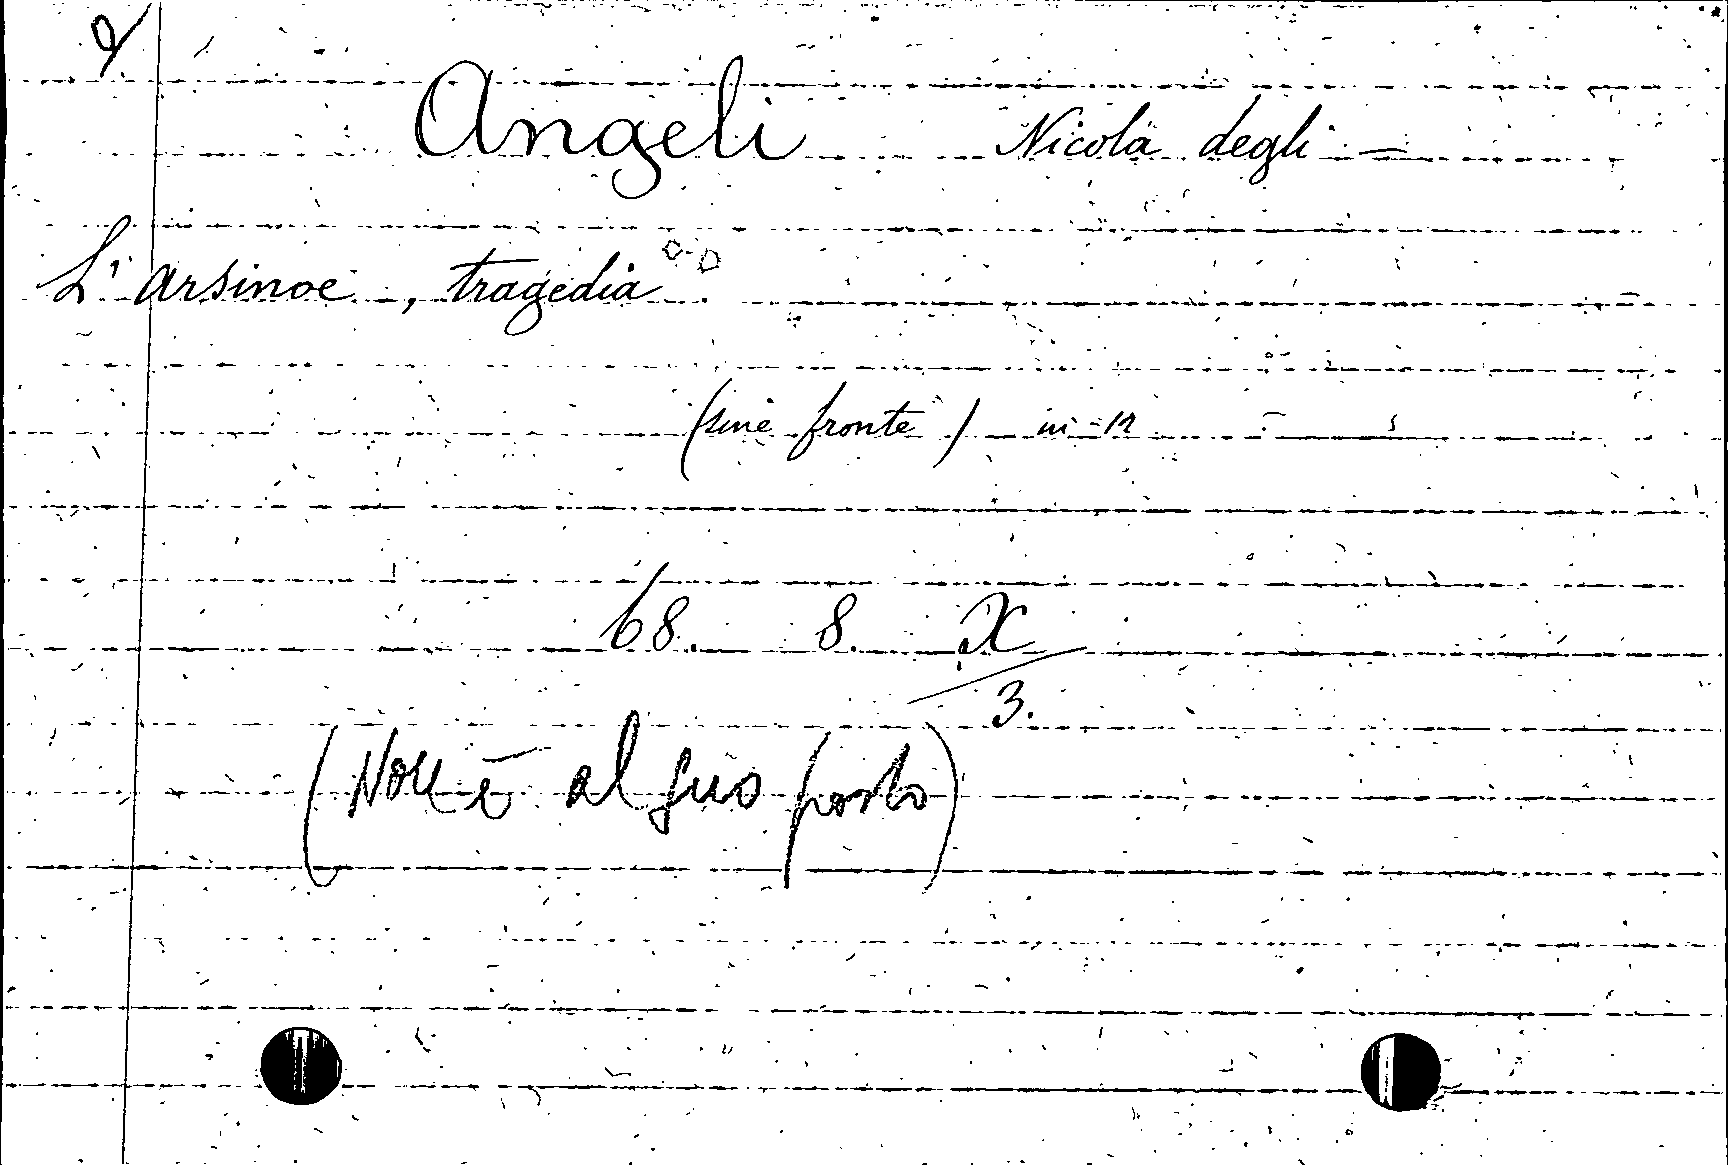 Angeli Nicola degli —
L'arsinoe, tragedia
(sine fronte) in-12
68. 8. X
3.
(Non è al suo posto)